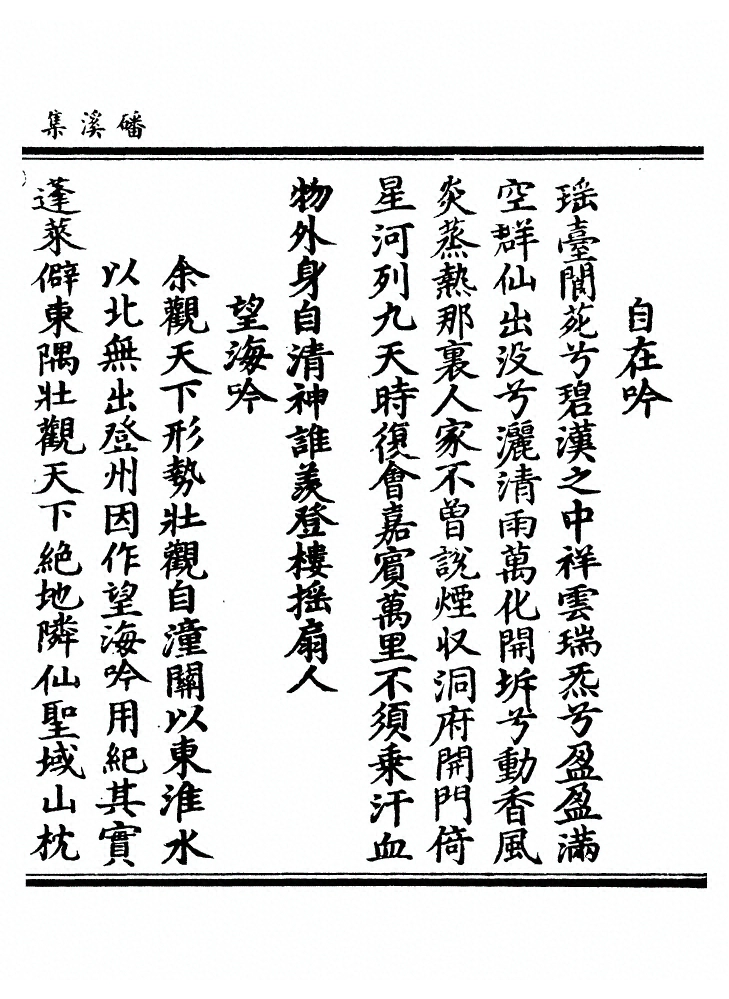 磻溪集
自在吟
瑶臺閬苑兮碧漢之中祥雲瑞炁兮盈盈滿
空群仙出没兮灑清雨萬化開坼兮動香風
炎蒸熱那裏人家不曾説煙収洞府開門倚
星河列九天時復會嘉賓萬里不須乗汗血
物外身自清神誰羨登樓揺扇人
望海吟
余觀天下形勢壯觀自潼關以東淮水
以北無出登州因作望海吟用紀其實
蓬萊僻東隅壯觀天下絶地隣仙聖域山枕